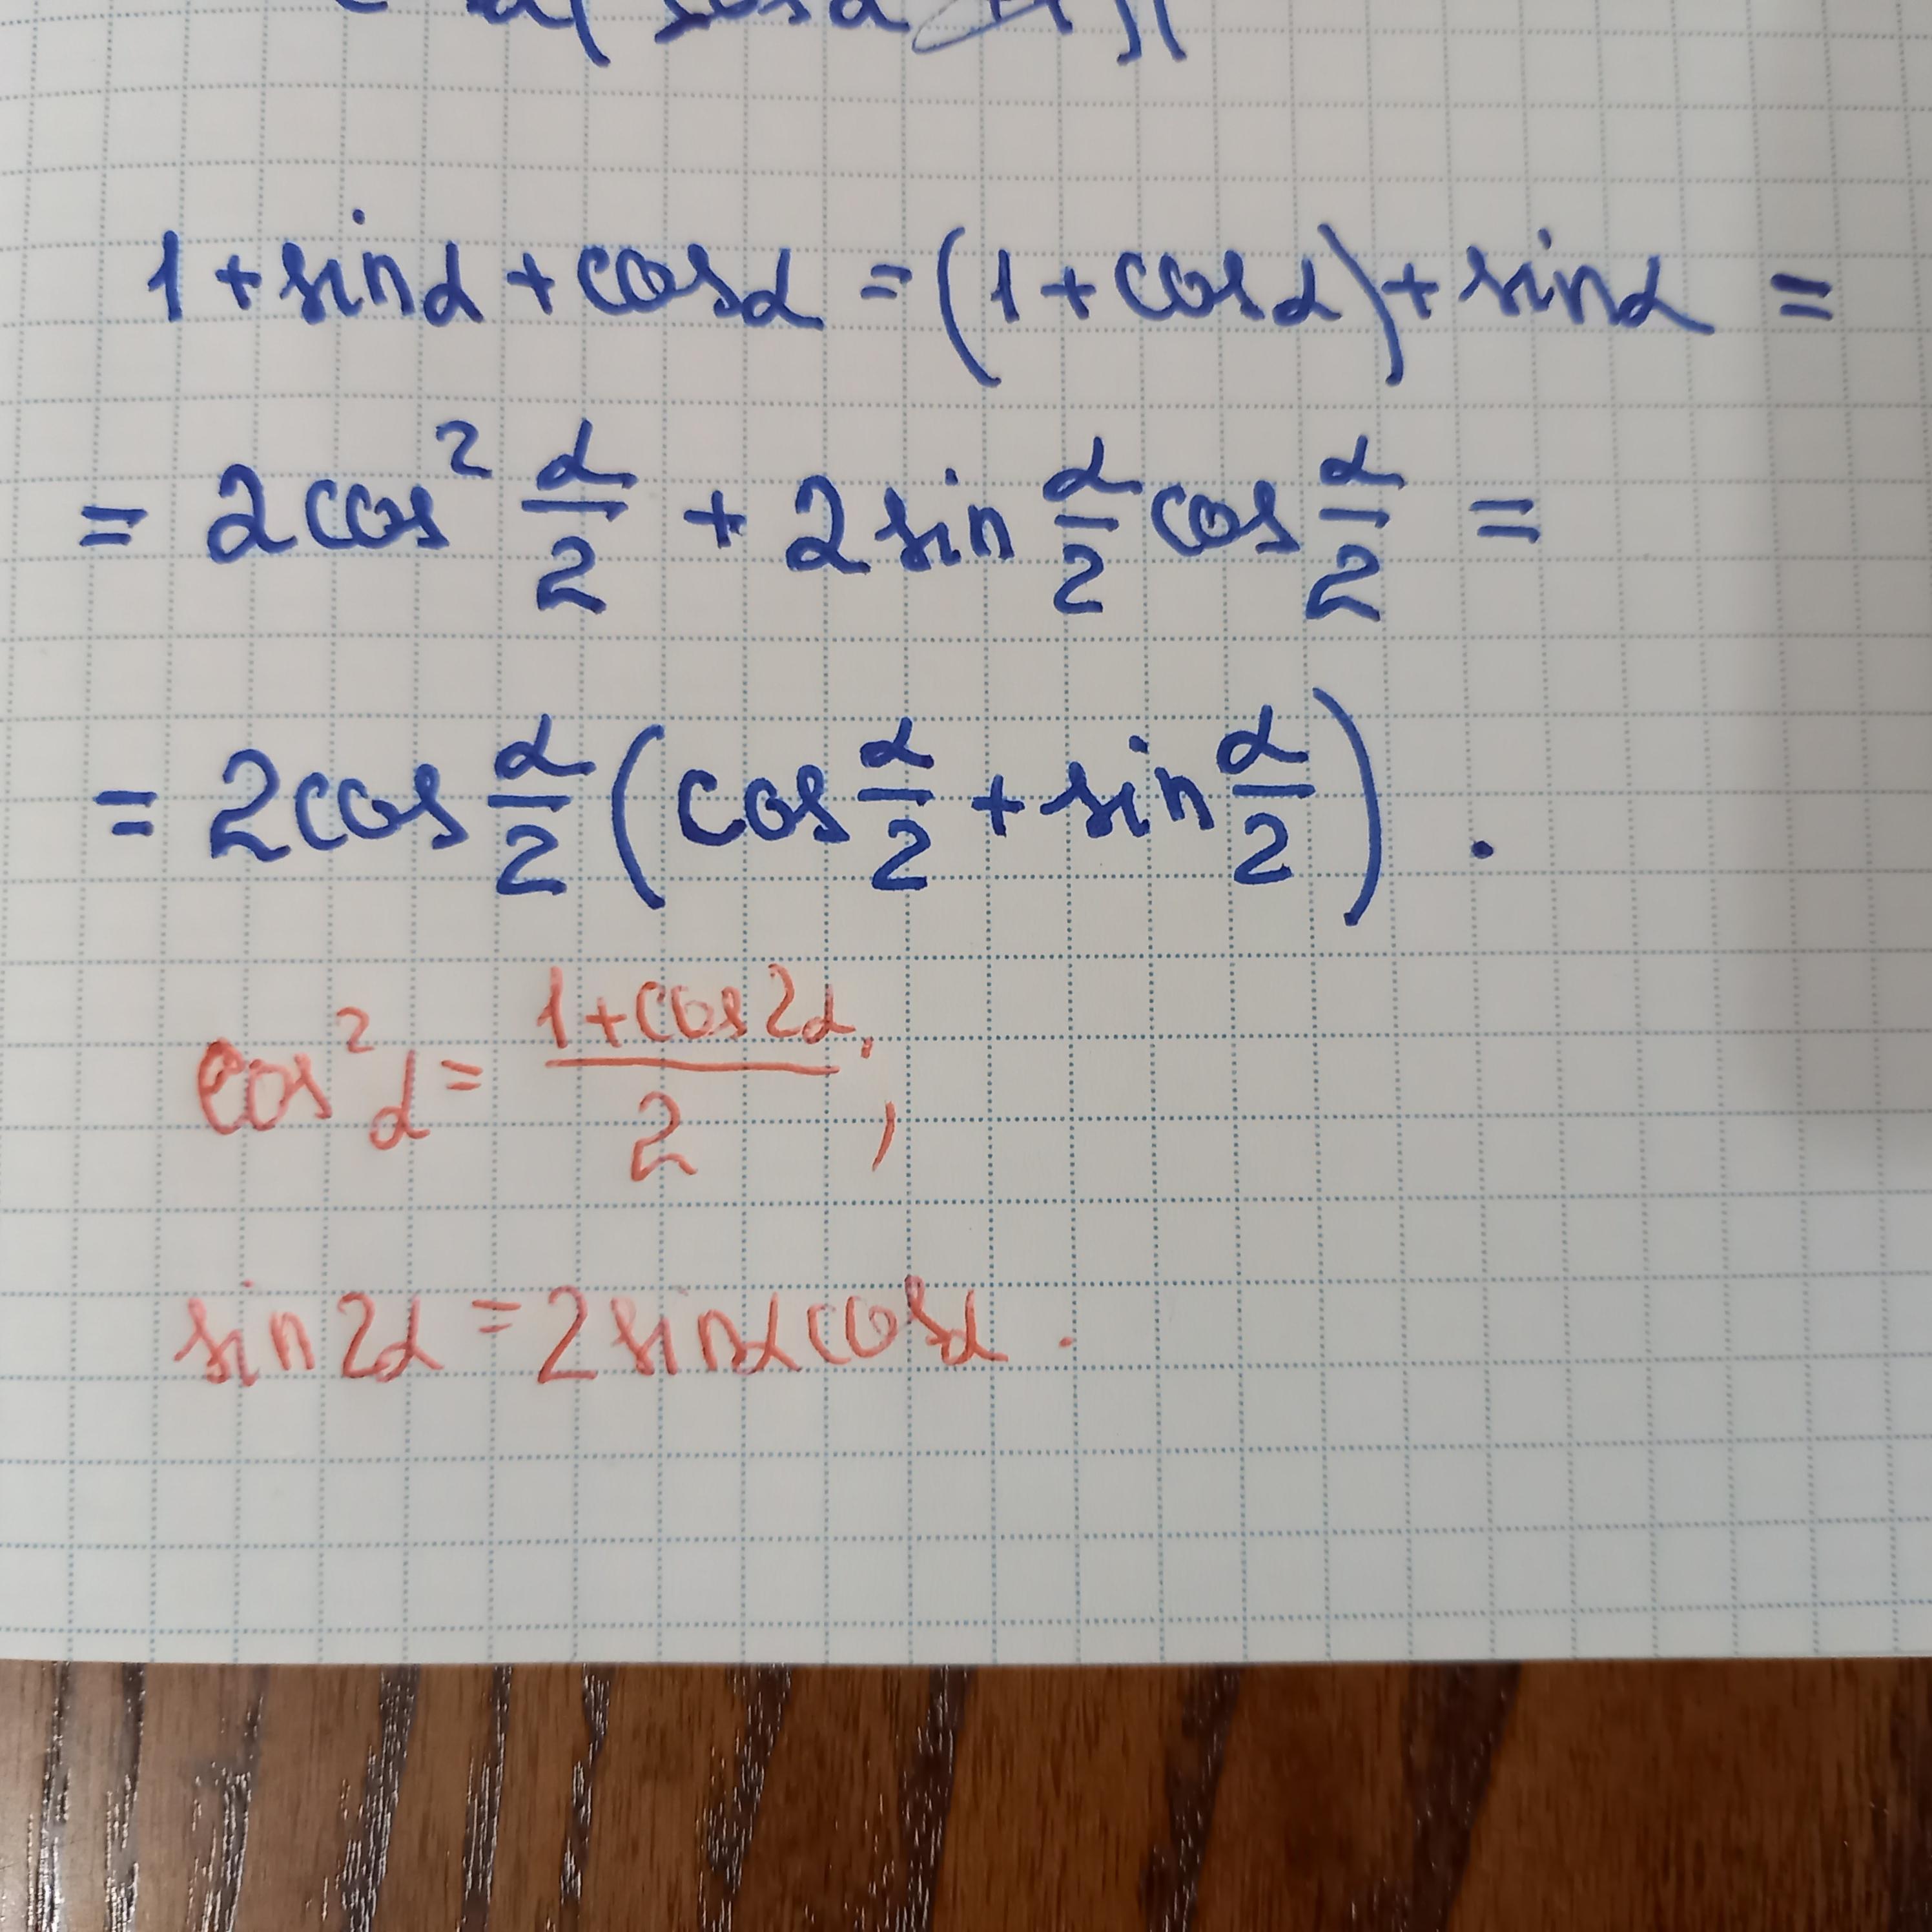 1 + sinα + cosα = (1 + cosα) + sinα =
= 2cos² α/2 + 2 sin α/2 cos α/2 =
= 2cos α/2 (cos α/2 + sin α/2) .
cos²α = (1+cos2α)/2 ;
sin2α = 2sinαcosα .